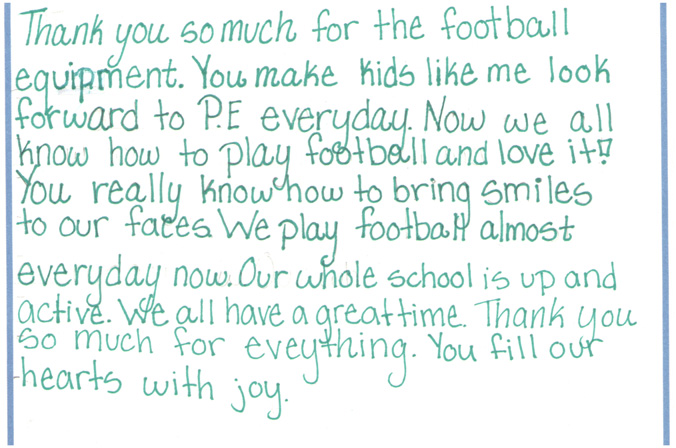 Thank you so much for the football
equipment. You make kids like me look
forward to P.E everyday. Now we all
know how to play football and love it!!
You really know how to bring smiles
to our faces We play football almost
everyday now. Our whole school is up and
active. We all have a great time. Thank you
so much for eveything. You fill our
hearts with joy.